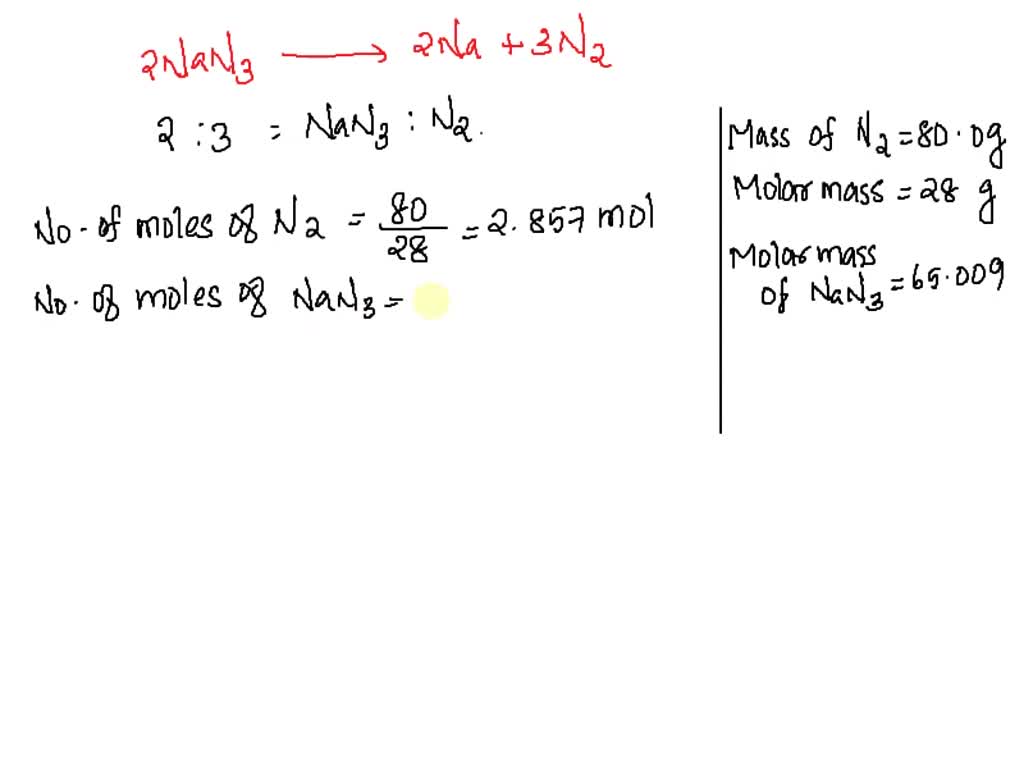 2NaN₃ → 2Na + 3N₂
2 : 3 = NaN₃ : N₂.
No. of moles of N₂ = 80/28 = 2.857 mol
No. of moles of NaN₃ =
Mass of N₂ = 80.0g
Molar mass = 28 g
Molar mass
of NaN₃ = 65.009